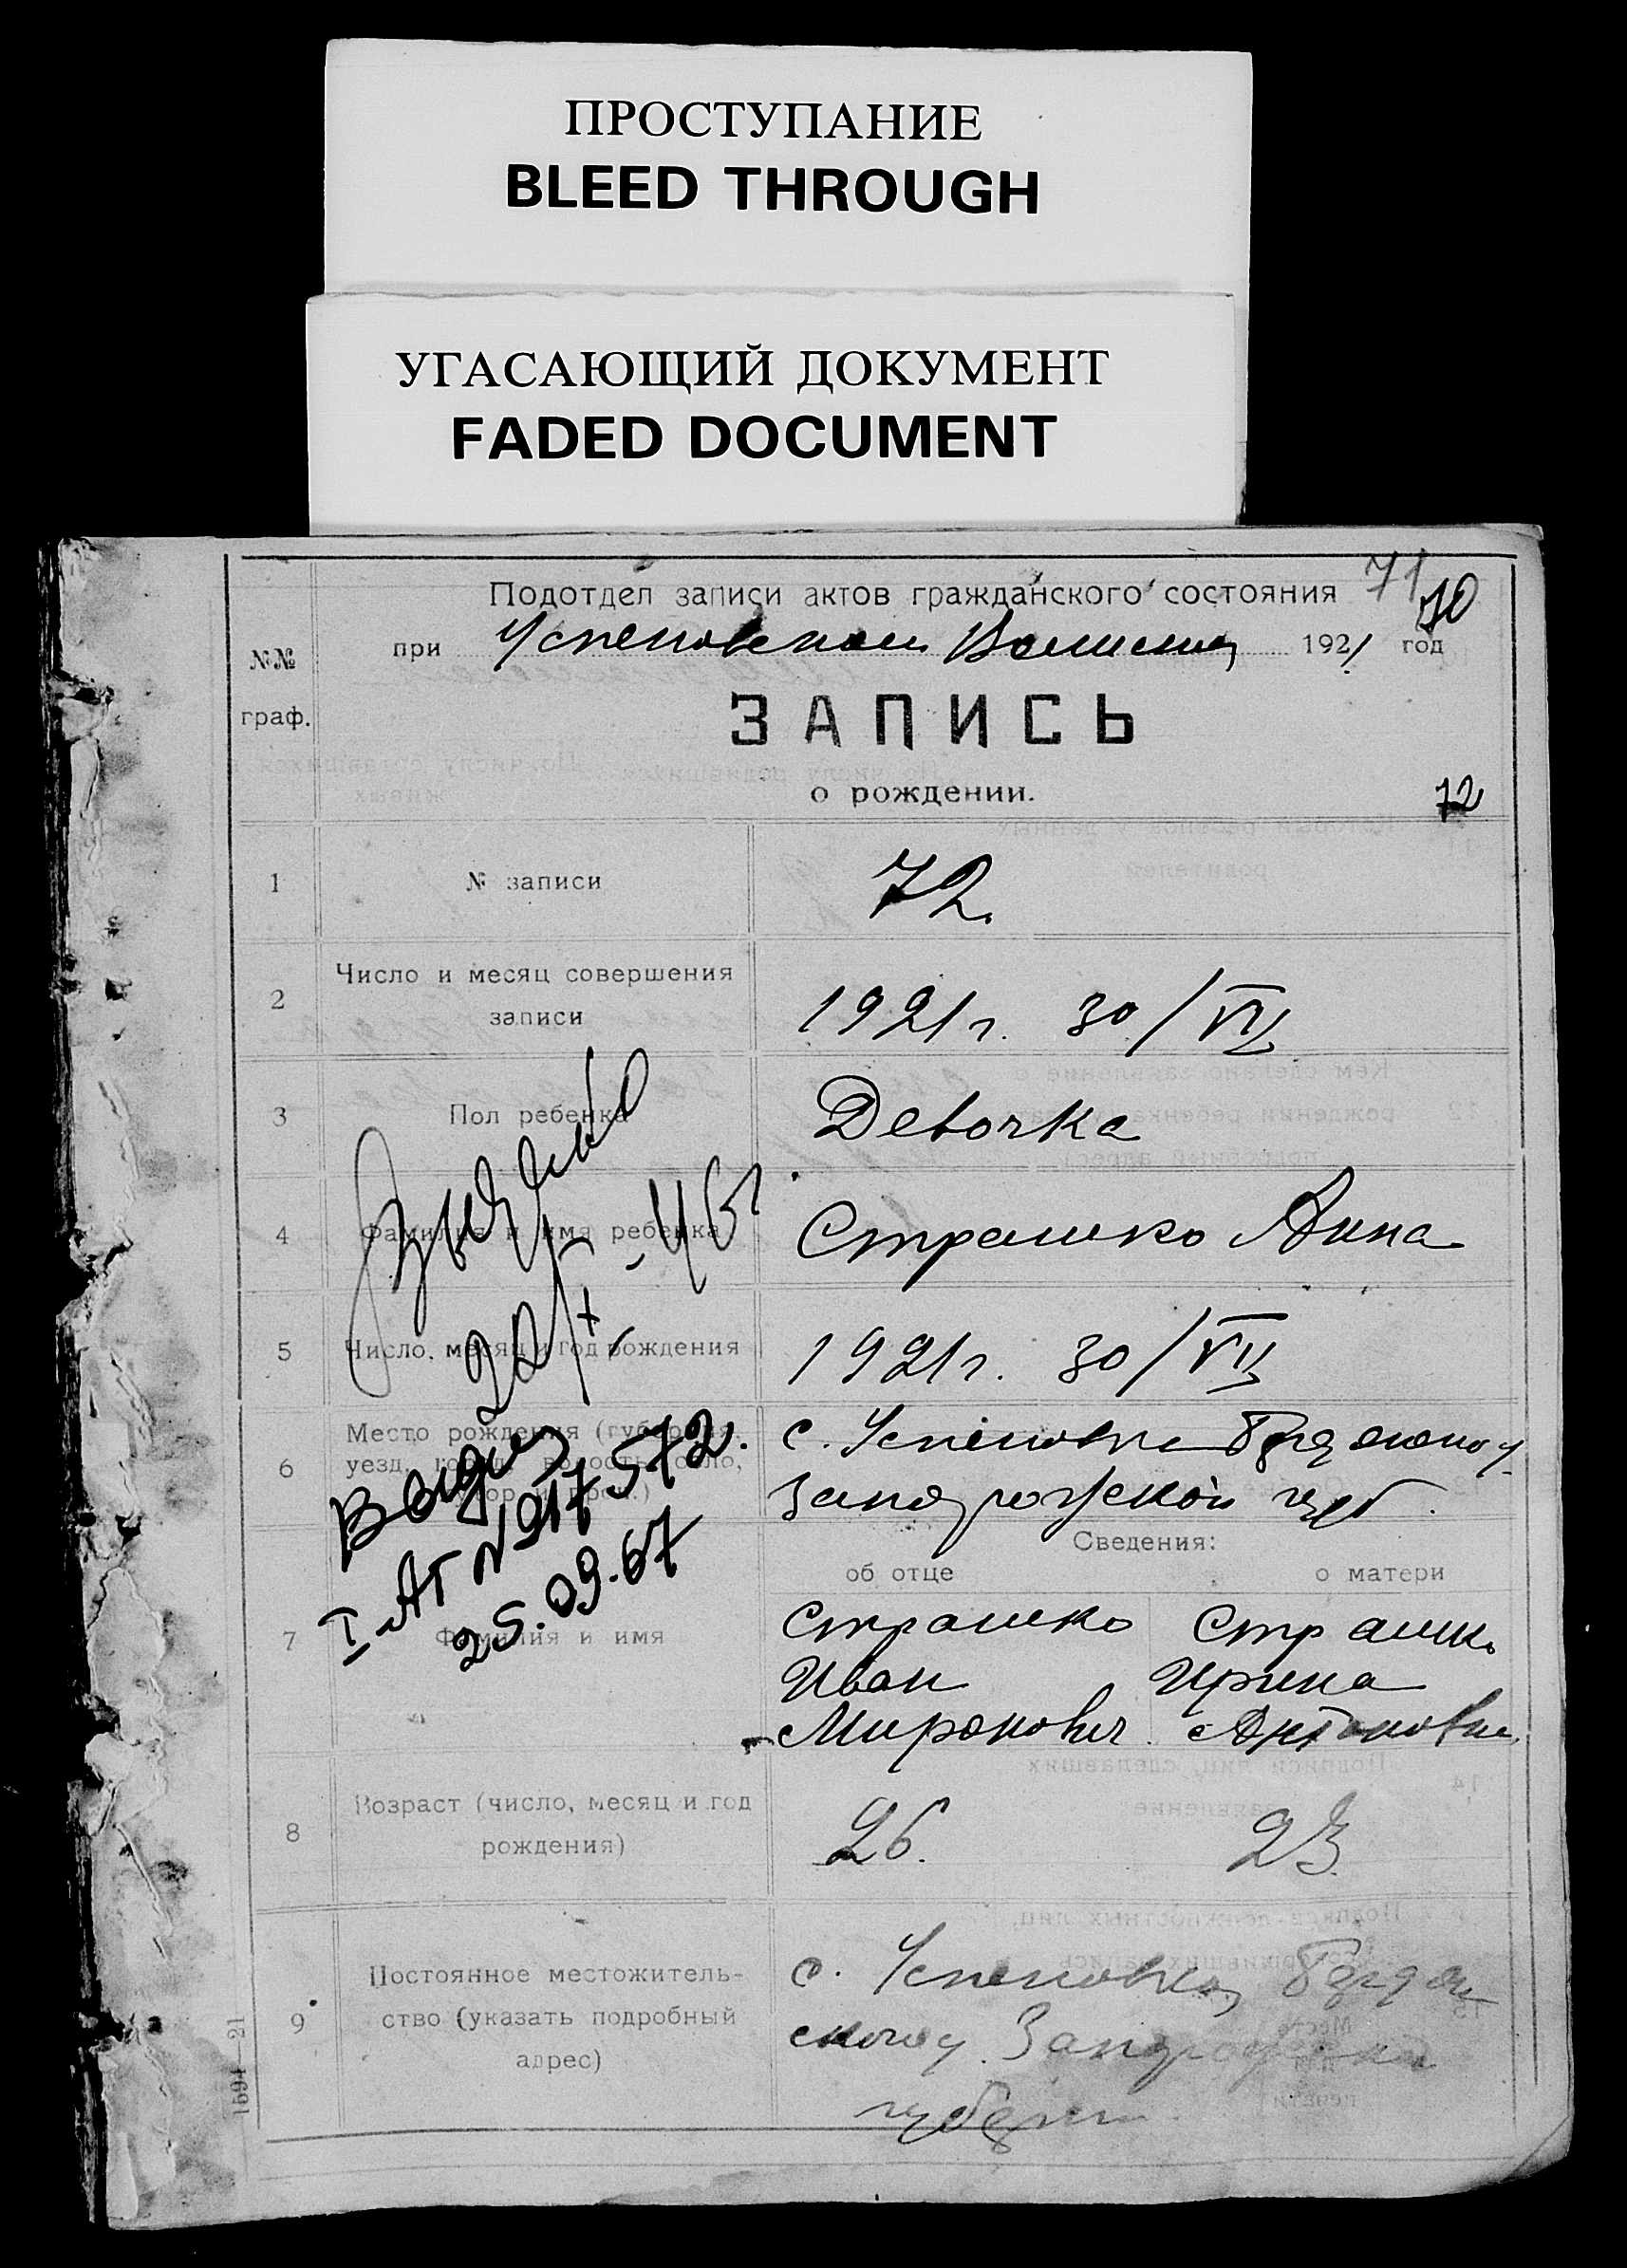 ПРОСТУПАНИЕ
BLEED THROUGH
УГАСАЮЩИЙ ДОКУМЕНТ
FADED DOCUMENT
71
70
Подотдел записи актов гражданского состояния
при Успеновском 1921 год
№№
граф.
ЗАПИСЬ
о рождении.
72
1 № записи 72.
2 Число и месяц совершения
записи 1921 г. 30/VII
3 Пол ребенка Девочка
4 Фамилия и имя ребенка Страшко Анна
5 Число, месяц и год рождения 1921 г. 30/VII
6 Место рождения (губерния, с. Успеновка
уезд, город, волость, село,
хутор и проч.) Запорожской губ.
I-АГ N 917572.
25.09.67
Сведения:
об отце о матери
7 Фамилия и имя
Страшко Страшко
Иван Ирина
Миронович Антоновна
8 Возраст (число, месяц и год
рождения) 26. 23.
9 Постоянное местожитель-
ство (указать подробный
адрес)
с. Успеновка Бердян
ского у. Запорожской
губернии
1594—21